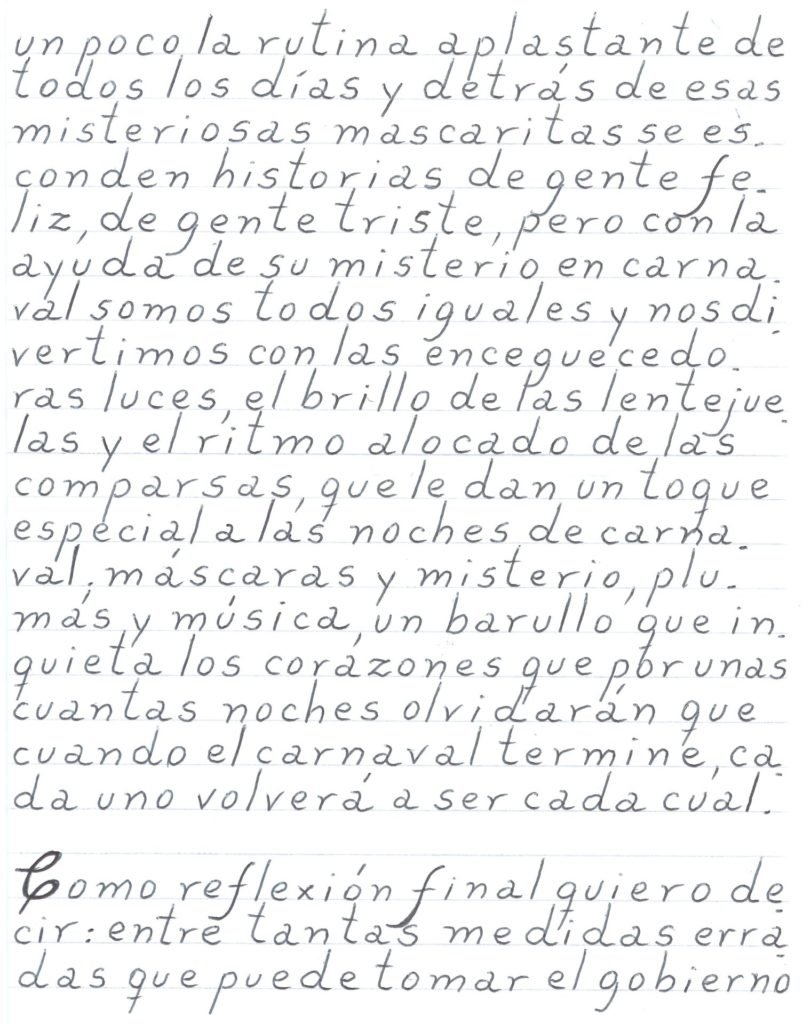 un poco la rutina aplastante de
todos los días y detrás de esas
misteriosas mascaritas se es-
conden historias de gente fe-
liz, de gente triste, pero con la
ayuda de su misterio en carna-
val somos todos iguales y nos di-
vertimos con las enceguecedo-
ras luces, el brillo de las lentejue-
las y el ritmo alocado de las
comparsas, que le dan un toque
especial a las noches de carna-
val; máscaras y misterio, plu-
mas y música, un barullo que in-
quieta los corazones que por unas
cuantas noches olvidarán que
cuando el carnaval termine, ca-
da uno volverá a ser cada cual.
Como reflexión final quiero de-
cir: entre tantas medidas erra-
das que puede tomar el gobierno